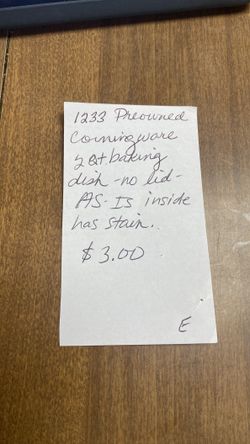 1233 Preowned
Corningware
2 Qt baking
dish - no lid -
AS-IS inside
has stain.
$3.00
E